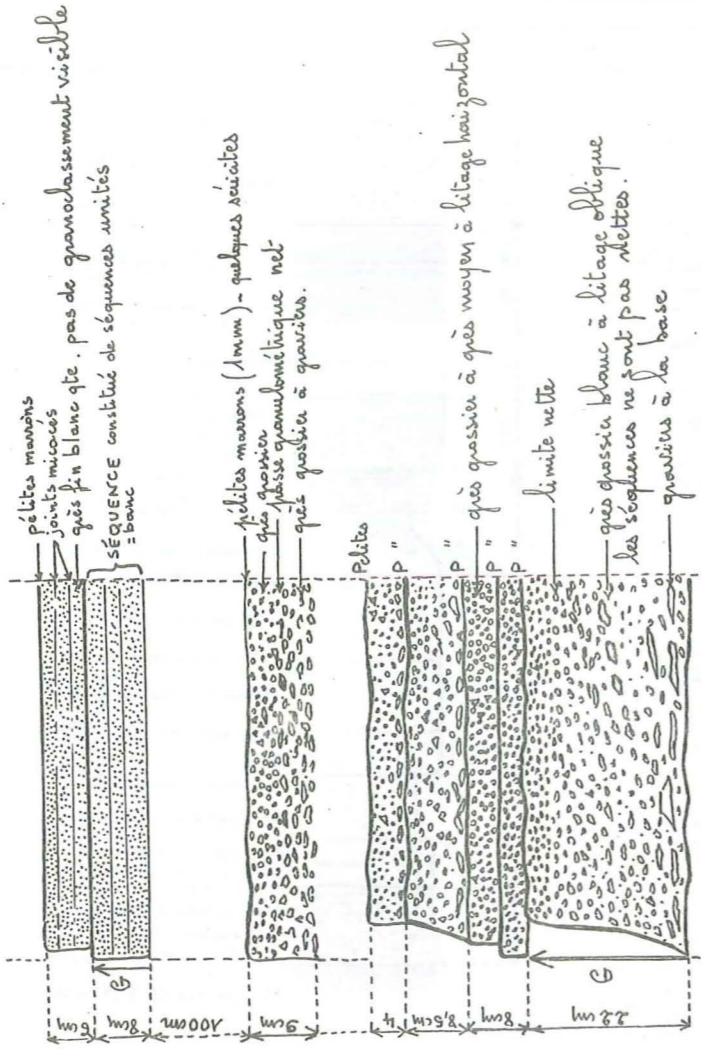 pélites marrons
joints micacés
grès fin blanc qte. pas de granoclassement visible
SÉQUENCE constitué de séquences unités
= banc
pélites marrons (1mm) - quelques séricites
grès grossier
passée granulométrique net
grès grossier à graviers.
Pélites
P "
P "
grès grossier à grès moyen à litage horizontal
P "
P "
limite nette
grès grossier blanc à litage oblique
les séquences ne sont pas nettes.
graviers à la base
6cm
8cm
G
100cm
9cm
4
8,5cm
8cm
22cm
G